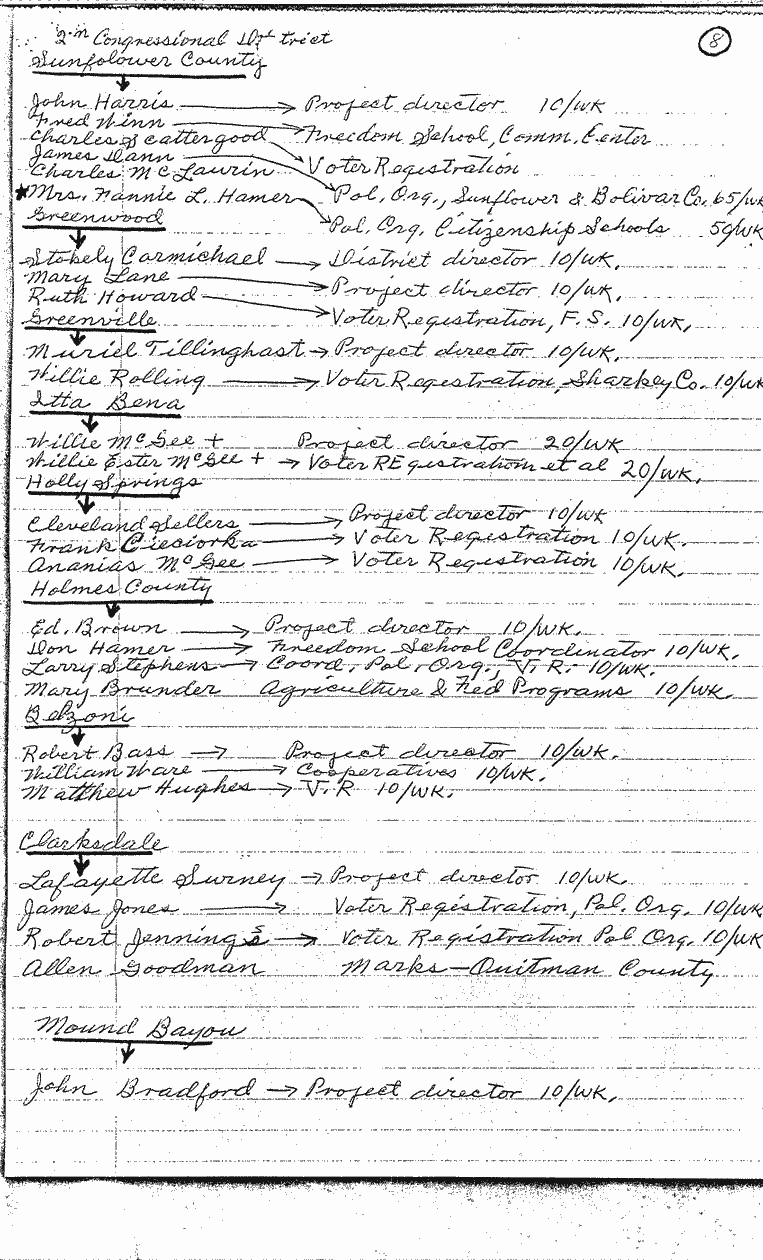 8
2nd Congressional District
Sunfolower County
John Harris → Project director 10/WK
Fred Winn → Freedom School, Comm. Center
Charles Scattergood → Voter Registration
James Dann → Pol. Org., Sunflower & Bolivar Co. 65/WK
Charles McLaurin → Pol. Org. Citizenship Schools 50/WK
★Mrs. Fannie L. Hamer
Greenwood
Stokely Carmichael → District director 10/WK.
Mary Lane → Project director 10/WK.
Ruth Howard → Voter Registration, F.S. 10/WK.
Greenville
Muriel Tillinghast → Project director 10/WK.
Willie Rolling → Voter Registration, Sharkey Co. 10/WK
Itta Bena
Willie McGee + Project director 20/WK
Willie Ester McGee + → Voter REgistration et al 20/WK.
Holly Springs
Cleveland Sellers → Project director 10/WK
Frank Cieciorka → Voter Registration 10/WK.
Ananias McGee → Voter Registration 10/WK.
Holmes County
Ed. Brown → Project director 10/WK.
Don Hamer → Freedom School Coordinator 10/WK.
Larry Stephens → Coord, Pol. Org., V.R. 10/WK.
Mary Brunder Agriculture & Fed Programs 10/WK.
Belzoni
Robert Bass → Project director 10/WK.
William Ware → Cooperatives 10/WK.
Matthew Hughes → V.R 10/WK.
Clarksdale
Lafayette Surney → Project director 10/WK.
James Jones → Voter Registration, Pol. Org. 10/WK
Robert Jennings → Voter Registration Pol Org. 10/WK
Allen Goodman Marks—Quitman County
Mound Bayou
John Bradford → Project director 10/WK.